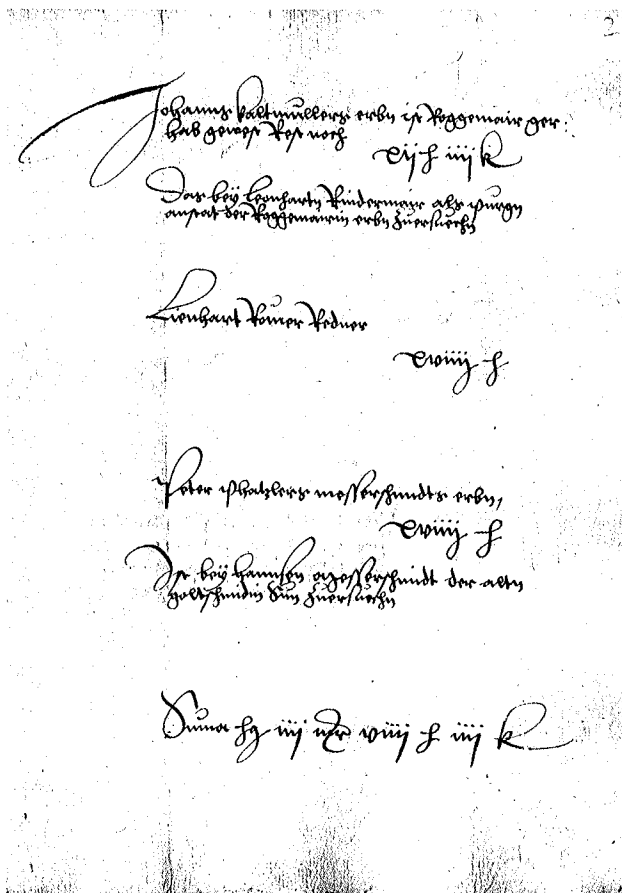 2
Johanns Kaltmüllers erbn ist Roggemair ger:
hab gewest Rest noch
xij ß iiij k
Das bey Leonhartn Rindermair als purgn
anstat der Roggemairin erbn zuersuechn
Lienhart Römer Redner
xviiij ß
Peter Phatzlers messerschmidts erbn,
xviiij ß
Ist bey Hannsen Messerschmidt der altn
goltschmidin Sun zuersuechn
Suma iij viiij ß iiij k